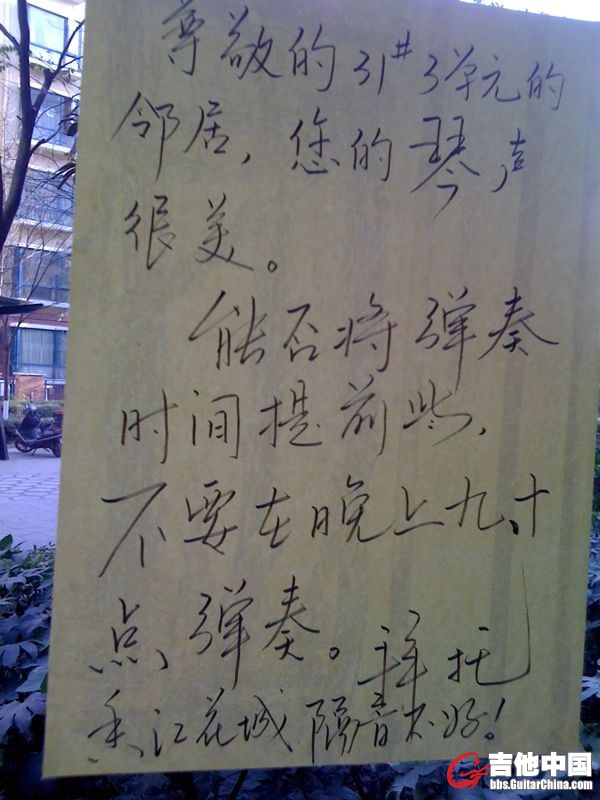 尊敬的31#3单元的
邻居，您的琴声
很美。
能否将弹奏
时间提前些，
不要在晚上九、十
点弹奏。拜托
香江花城隔音不好！
吉他中国
bbs.GuitarChina.com